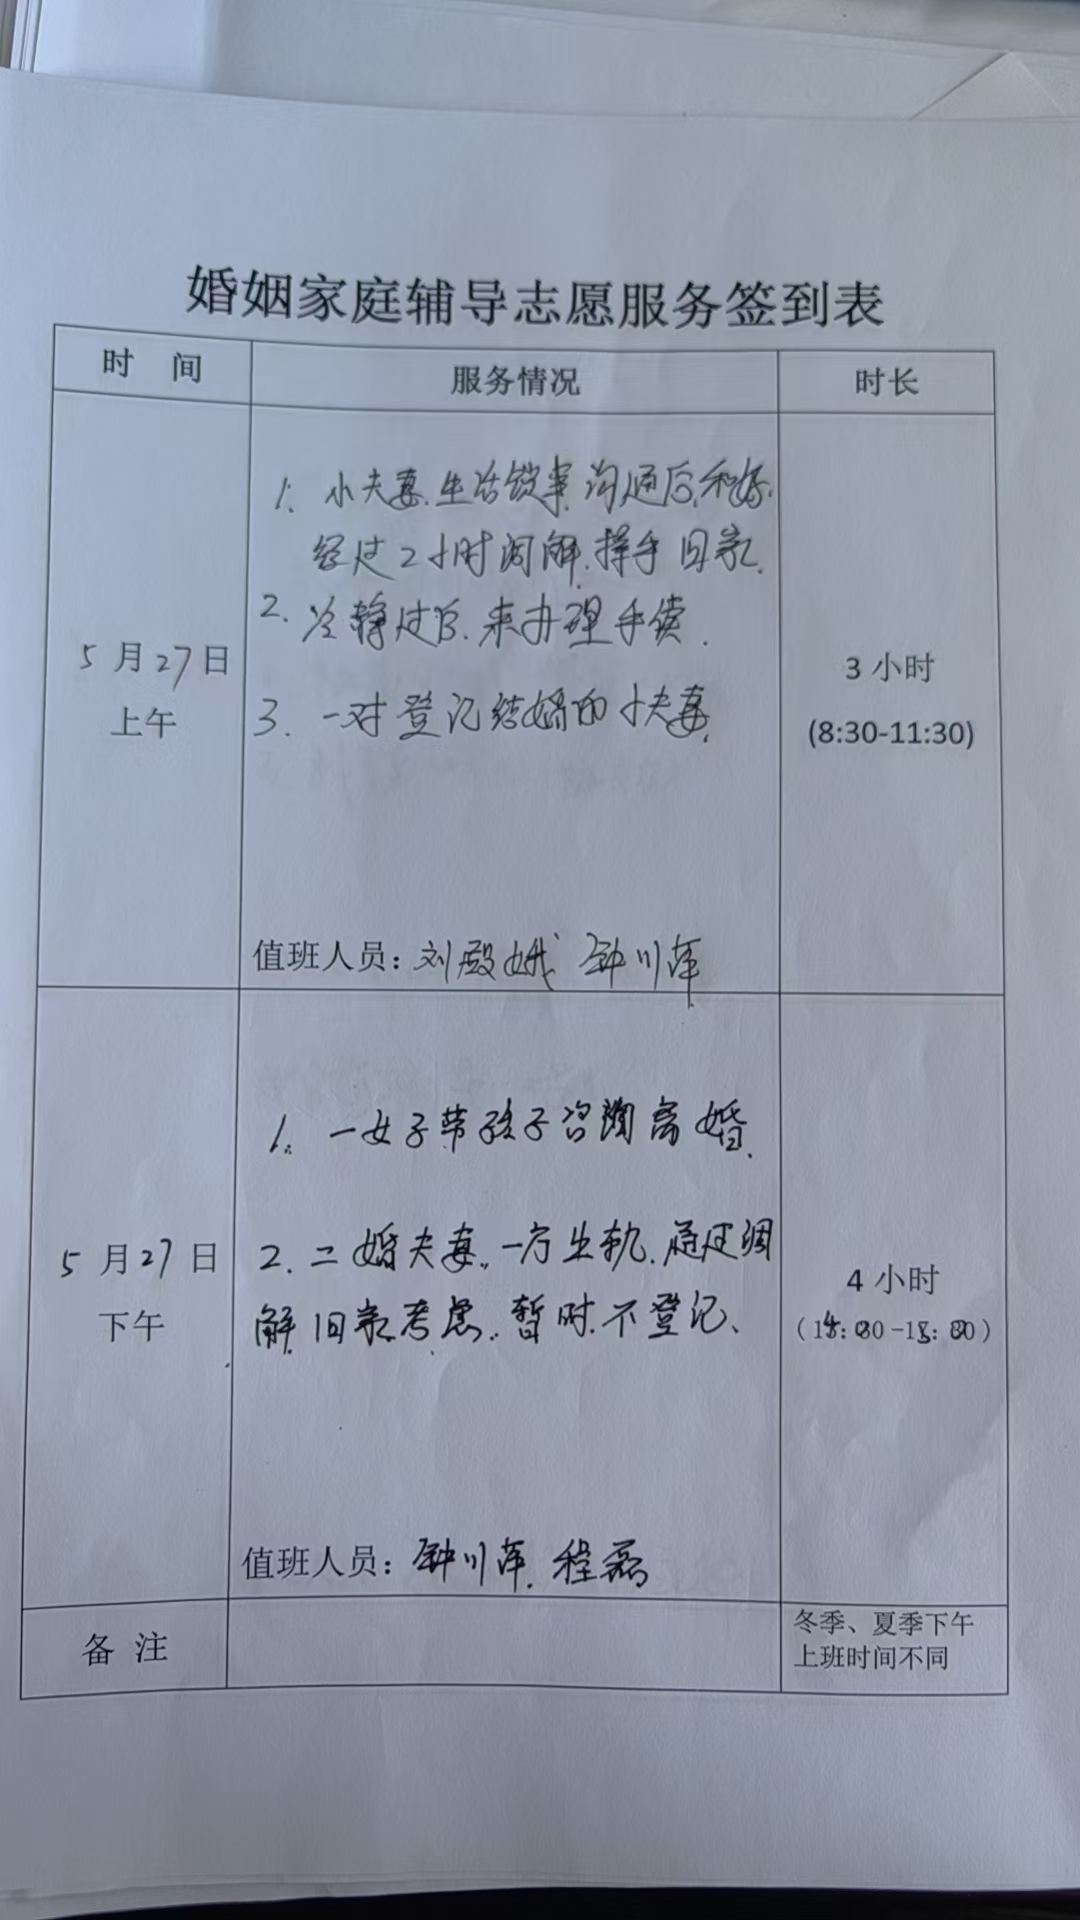 婚姻家庭辅导志愿服务签到表
时 间 服务情况 时长
1. 小夫妻.生活锁事.沟通后.和好.
经过2小时调解.择手回家.
2. 冷静过后.来办理手续.
3. 一对登记结婚的小夫妻.
5月27日
上午
3小时
(8:30-11:30)
值班人员：刘殿娥 钟川萍
1. 一女子带孩子咨询离婚.
2. 二婚夫妻..一方出轨.通过调
解.回家考虑..暂时.不登记、
5月27日
下午
4小时
值班人员：钟川萍.程磊
备 注
冬季、夏季下午
上班时间不同